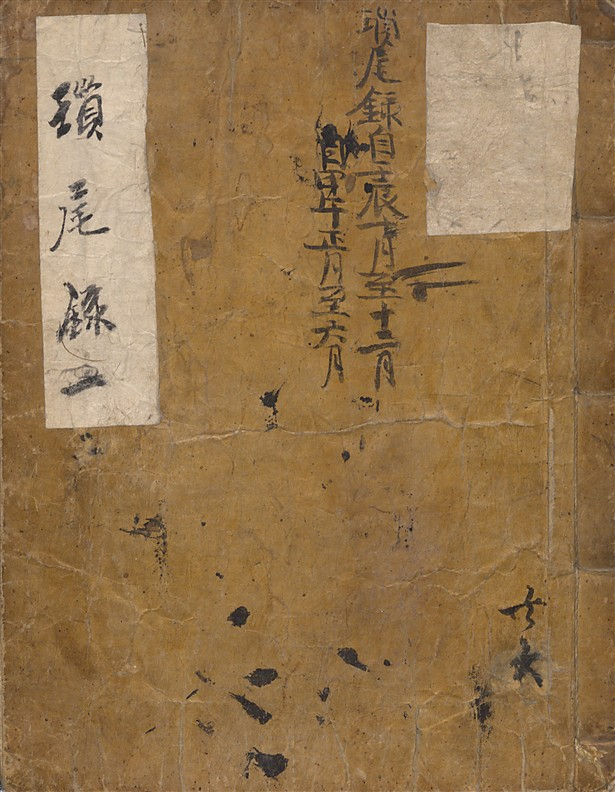 瑣尾錄自壬辰月至十二月
自甲午正月至六月
瑣尾錄一